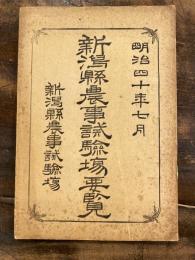 明治四十年七月
新潟縣農事試驗場要覧
新潟縣農事試驗場